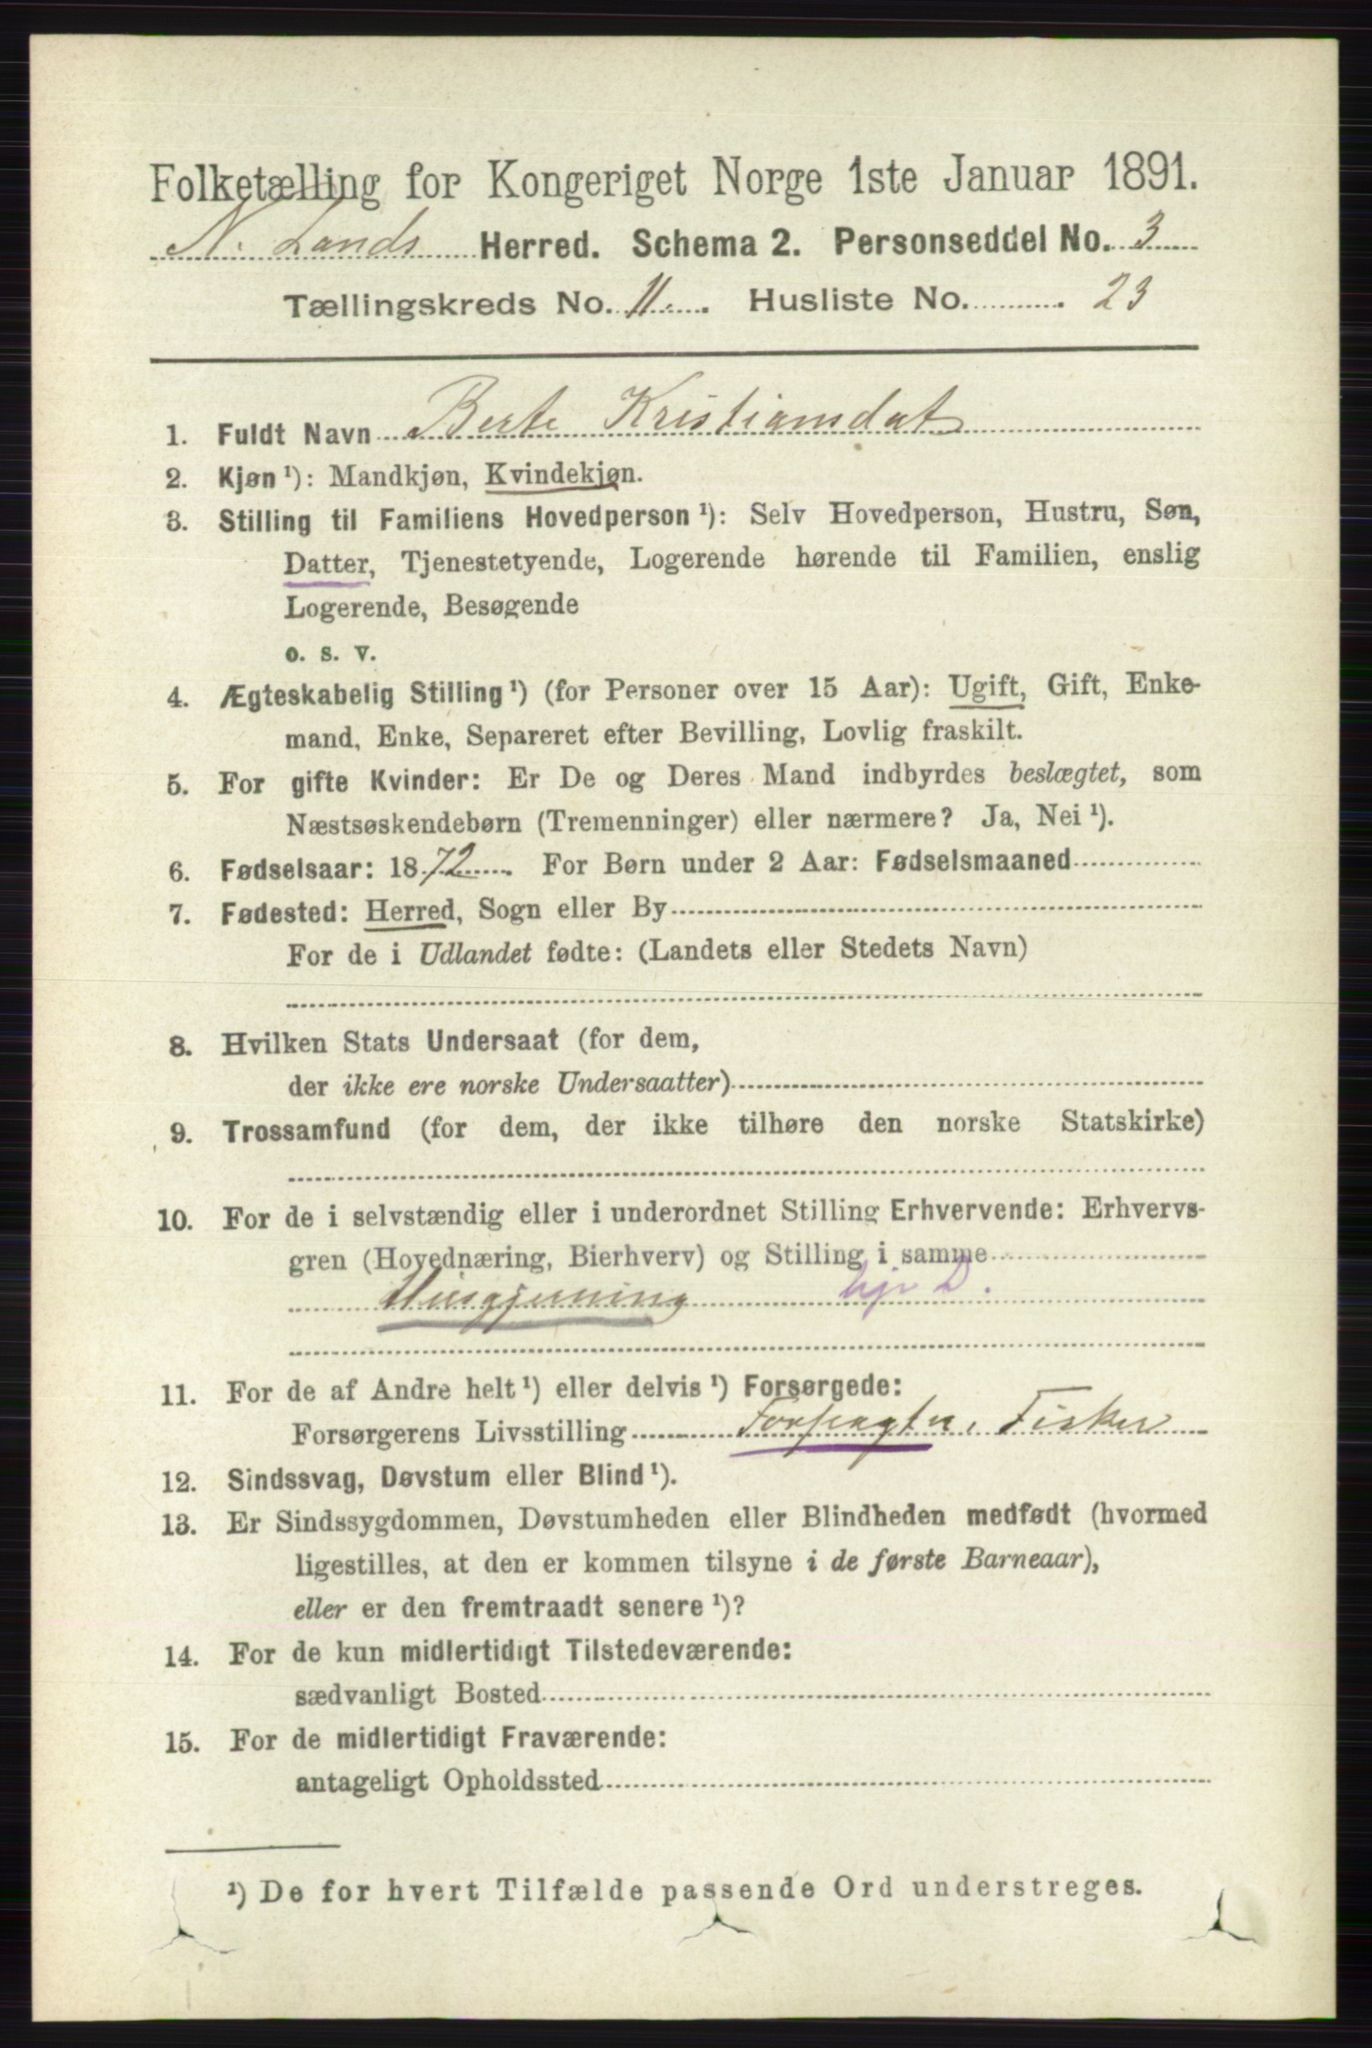 Folketælling for Kongeriget Norge 1ste Januar 1891.
N. Lands Herred. Schema 2. Personseddel No. 3
Tællingskreds No. 11. Husliste No. 23
1. Fuldt Navn Berte Kristiansdat
2. Kjøn ¹): Mandkjøn, Kvindekjøn.
3. Stilling til Familiens Hovedperson ¹): Selv Hovedperson, Hustru, Søn,
Datter, Tjenestetyende, Logerende hørende til Familien, enslig
Logerende, Besøgende
o. s. v.
4. Ægteskabelig Stilling ¹) (for Personer over 15 Aar): Ugift, Gift, Enke-
mand, Enke, Separeret efter Bevilling, Lovlig fraskilt.
5. For gifte Kvinder: Er De og Deres Mand indbyrdes beslægtet, som
Næstsøskendebørn (Tremenninger) eller nærmere? Ja, Nei ¹).
6. Fødselsaar: 1872. For Børn under 2 Aar: Fødselsmaaned
7. Fødested: Herred, Sogn eller By
For de i Udlandet fødte: (Landets eller Stedets Navn)
8. Hvilken Stats Undersaat (for dem,
der ikke ere norske Undersaatter)
9. Trossamfund (for dem, der ikke tilhøre den norske Statskirke)
10. For de i selvstændig eller i underordnet Stilling Erhvervende: Erhvervs-
gren (Hovednæring, Bierhverv) og Stilling i samme
Husgjerning hj. D.
11. For de af Andre helt ¹) eller delvis ¹) Forsørgede:
Forsørgerens Livsstilling Forpagter, Fisker
12. Sindssvag, Døvstum eller Blind ¹).
13. Er Sindssygdommen, Døvstumheden eller Blindheden medfødt (hvormed
ligestilles, at den er kommen tilsyne i de første Barneaar),
eller er den fremtraadt senere ¹)?
14. For de kun midlertidigt Tilstedeværende:
sædvanligt Bosted
15. For de midlertidigt Fraværende:
antageligt Opholdssted
¹) De for hvert Tilfælde passende Ord understreges.